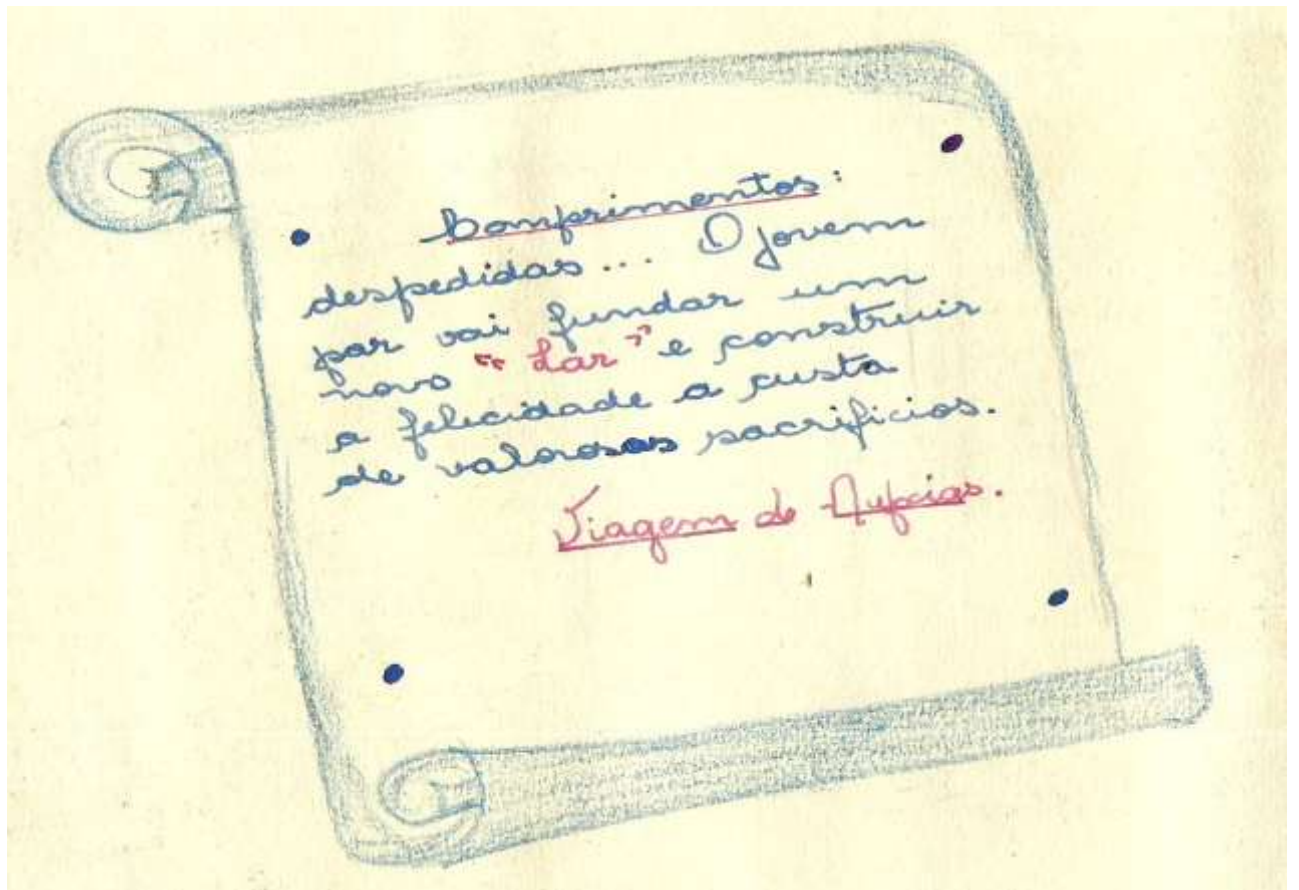 Comprimentos:
despedidas... O jovem
par vai fundar um
novo "Lar" e construir
a felicidade a custa
de valorosos sacrificios.
Viagem de Nupcias.